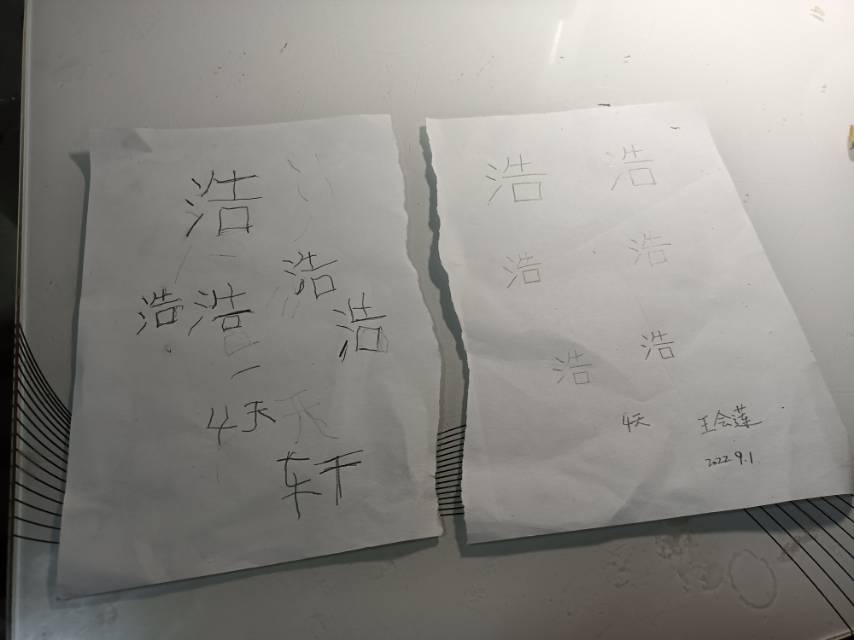 浩
浩
浩 浩
浩
4天天
轩
浩 浩
浩 浩
浩 浩
4天 王会莲
2022.9.1